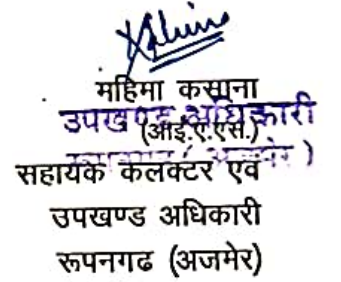 महिमा कसाना
उपखण्ड अधिकारी
(आई.ए.एस.)
(अजमेर)
सहायक कलक्टर एवं
उपखण्ड अधिकारी
रूपनगढ (अजमेर)